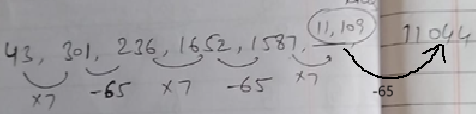 43, 301, 236, 1652, 1587, 11,109 11044
×7 -65 ×7 -65 ×7 -65